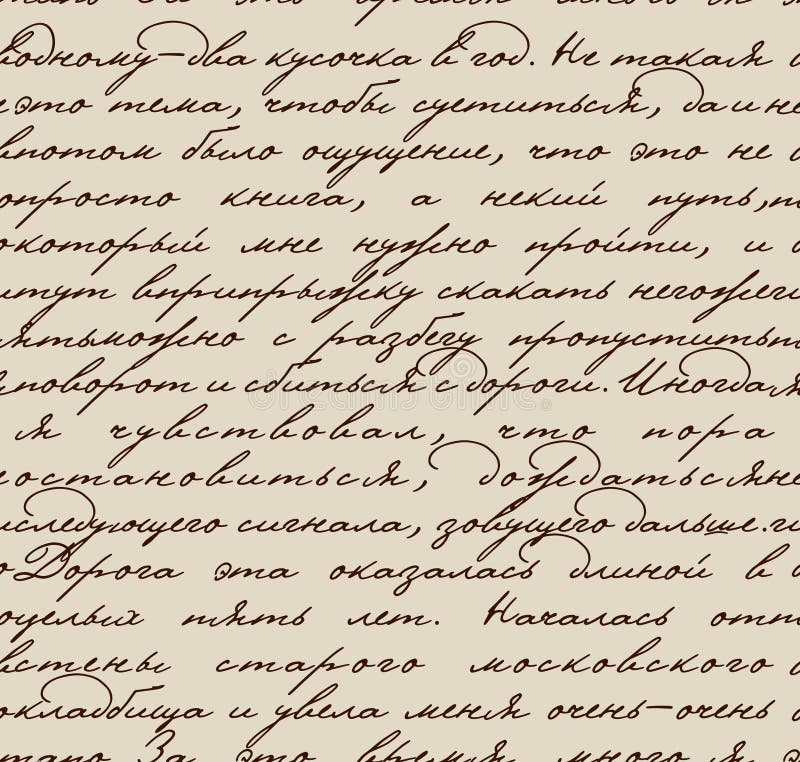 одному—два кусочка в год. Не такая
это тема, чтобы суетиться, да и не
потом было ощущение, что это не
просто книга, а некий путь,
который мне нужно пройти, и
тут вприпрыжку скакать негоже
можно с разбегу пропустить
поворот и сбиться с дороги. Иногда
я чувствовал, что пора
остановиться, дождаться
следующего сигнала, зовущего дальше.
Дорога эта оказалась длиной в
целых пять лет. Началась от
стены старого московского
кладбища и увела меня очень—очень
За это время много